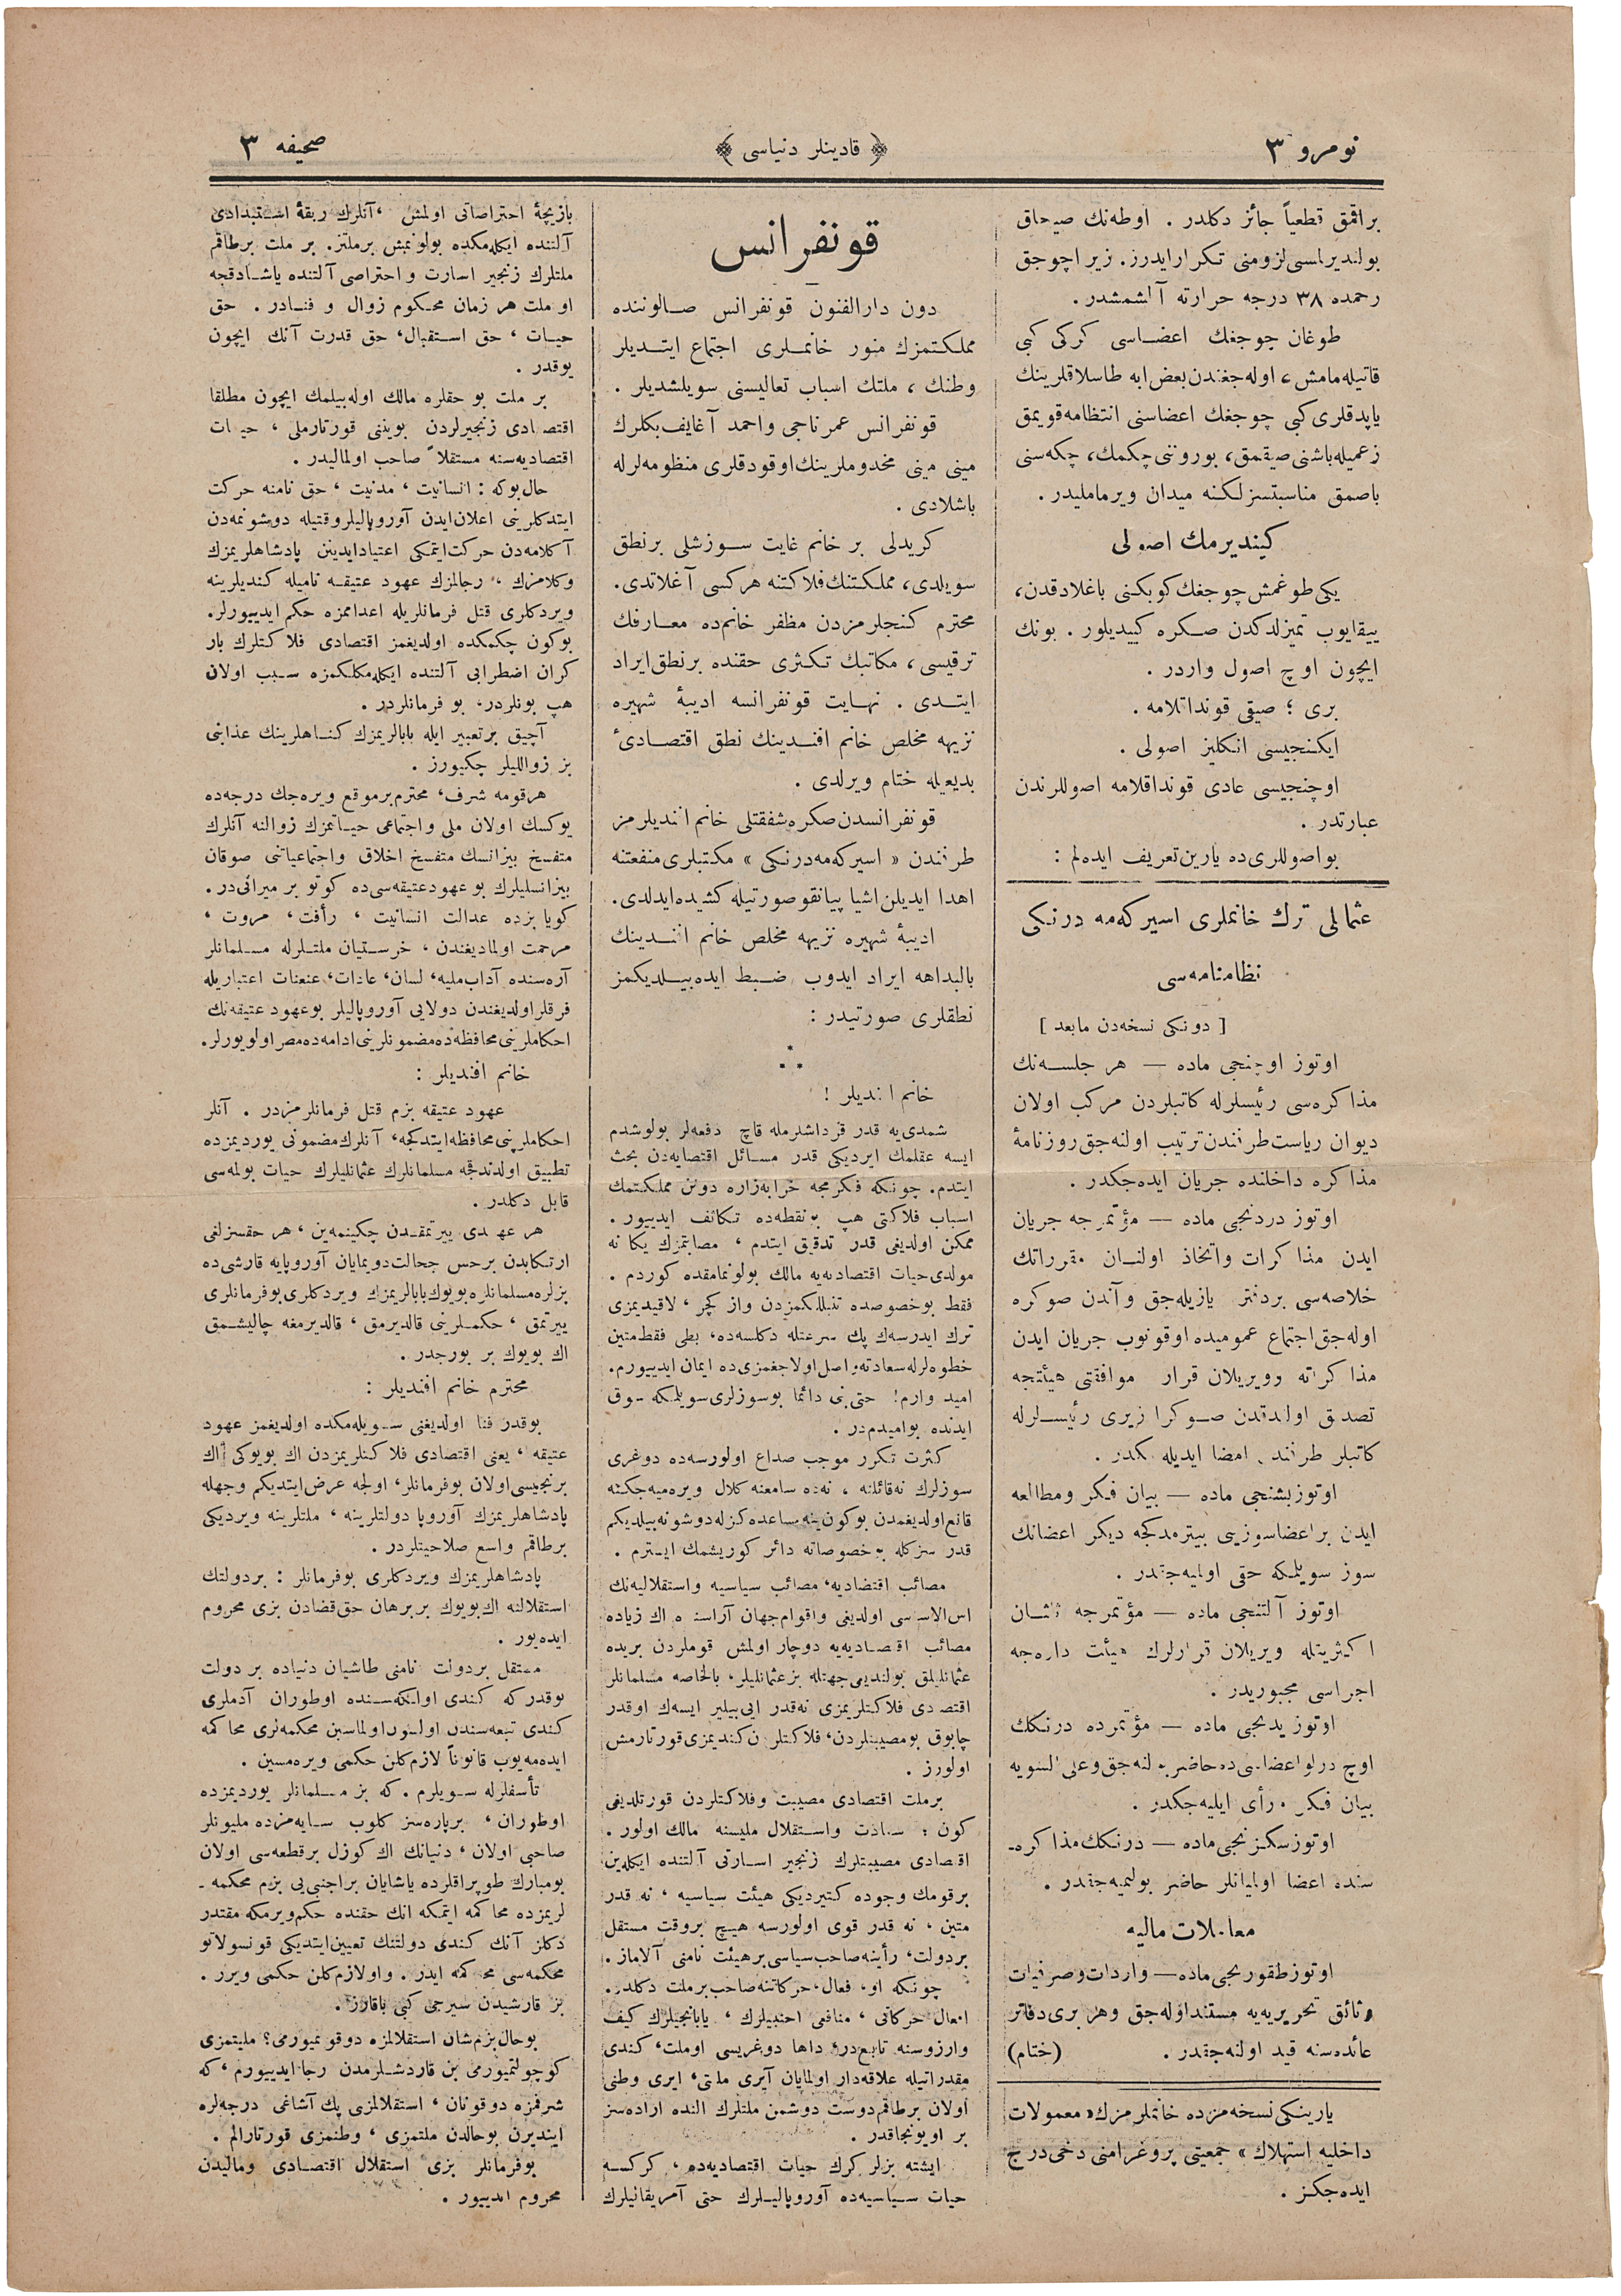 نومرو ٣
﴿ قادينلر دنياسى ﴾
صحيفه ٣
براقمق قطعياً جائز دكلدر . اوطه‌نك صيجاق
بولنديرلمسى لزومنى تكرار ايدرز. زيرا چوجق
رحمده ٣٨ درجه حرارته آلشمشدر .
طوغان چوجغك اعضاسى كركى كبى
قاتيله‌مامش، اوله‌جغندن بعض ابه طاسلاقلرينك
ياپدقلرى كبى چوجغك اعضاسنى انتظامه قويمق
زعميله باشنى صيقمق، بورونى چكمك، چكه‌سنى
باصمق مناسبتسزلكنه ميدان ويرماملیدر .
كينديرمك اصولى
يكى طوغمش چوجغك كوبكنى باغلادقدن،
ييقايوب تميزلدكدن صكره كييديلور . بونك
ايچون اوچ اصول واردر .
برى ؛ صيقى قونداقلامه .
ايكنجيسى انكليز اصولى .
اوچنجيسى عادى قونداقلامه اصوللرندن
عبارتدر .
بو اصوللرى ده يارين تعريف ايده‌لم :
عثمانلى ترك خانملرى اسيركه‌مه درنكى
نظامنامه‌سى
[ دونكى نسخه‌دن مابعد ]
اوتوز اوچنجى ماده — هر جلسه‌نك
مذاكره‌سى رئيسلرله كاتبلردن مركب اولان
ديوان رياست طرفندن ترتيب اولنه‌جق روزنامهٔ
مذاكره داخلنده جريان ايده‌جكدر .
اوتوز دردنجى ماده — مؤتمرجه جريان
ايدن مذاكرات واتخاذ اولنان مقرراتك
خلاصه‌سى بردفتر يازيله‌جق وآندن صوكره
اوله‌جق اجتماع عموميده اوقونوب جريان ايدن
مذاكراته وويريلان قرار موافقتى هيئتجه
تصديق اولندقدن صوكرا زيرى رئيسلرله
كاتبلر طرفندن امضا ايديله‌جكدر .
اوتوز بشنجى ماده — بيان فكر ومطالعه
ايدن براعضاسوزينى بيترمدكجه ديكر اعضانك
سوز سويلمكه حقى اولميه‌جقدر .
اوتوز آلتنجى ماده — مؤتمرجه ثلثان
اكثريتله ويريلان قرارلرك هيئت داره‌جه
اجراسى مجبوريدر .
اوتوز يدنجى ماده — مؤتمرده درنكك
اوچ درلو اعضاسى ده حاضر بولنه‌جق وعلى السويه
بيان فكر ورأى ايليه‌جكدر .
اوتوز سكزنجى ماده — درنكك مذاكره‌-
سنده اعضا اوليانلر حاضر بولنميه‌جقدر .
معاملات ماليه
اوتوز طقوزنجى ماده — واردات وصرفيات
وثائق تحريريه‌يه مستند اوله‌جق وهر برى دفاتر
عائده‌سنه قيد اولنه‌جقدر . (ختام)
يارينكى نسخه‌مزده خانملرمزك « معمولات
داخليه استهلاك » جمعيتى پروغرامنى دخى درج
ايده‌جكز .
قونفرانس
دون دارالفنون قونفرانس صالوننده
مملكتمزك منور خانملرى اجتماع ايتديلر
وطنك ، ملتك اسباب تعاليسنى سويلشديلر .
قونفرانس عمر ناجى واحمد آغايف بكلرك
مينى مينى مخدوملرينك اوقودقلرى منظومه‌لرله
باشلادى .
كريدلى بر خانم غايت سوزشلى برنطق
سويلدى، مملكتنك فلاكتنه هركسى آغلاتدى.
محترم كنجلرمزدن مظفر خانم ده معارفك
ترقيسى ، مكاتبك تكثرى حقنده برنطق ايراد
ايتدى . نهايت قونفرانسه اديبهٔ شهيره
نزيهه مخلص خانم افندينك نطق اقتصادىٔ
بديعيله ختام ويرلدى .
قونفرانسدن صكره شفقتلى خانم افنديلرمز
طرفندن « اسيركه‌مه درنكى » مكتبلرى منفعتنه
اهدا ايديلن اشيا پيانقو صورتيله كشيده ايدلدى.
اديبهٔ شهيره نزيهه مخلص خانم افندينك
بالبداهه ايراد ايدوب ضبط ايده‌بيلديكمز
نطقلرى صورتيدر :
خانم افنديلر !
شمدى‌يه قدر قزداشلرمله قاچ دفعه‌لر بولوشدم
ايسه عقلمك ايرديكى قدر مسائل اقتصاديه‌دن بحث
ايتدم. چونكه فكرمجه خرابه‌زاره دونن مملكتمك
اسباب فلاكتى هپ بونقطه‌ده تكاثف ايدييور.
ممكن اولديغى قدر تدقيق ايتدم ، مصائبمزك يكانه
مولدى حيات اقتصاديه‌يه مالك بولونمامقده كوردم .
فقط بوخصوصده تنبللكمزدن واز كچر ، لاقيديمزى
ترك ايدرسه‌ك پك سرعتله دكلسه‌ده، بطى فقط متين
خطوه‌لرله سعادته واصل اولاجغمزى ده ايمان ايدييورم.
اميد وارم! حتى بنى دائما بوسوزلرى سويلمكه سوق
ايدنده بواميدمدر .
كثرت تكرر موجب صداع اولورسه‌ده دوغرى
سوزلرك نه قائلنه ، نه‌ده سامعنه كلال ويره‌ميه‌جكنه
قانع اولديغمدن بوكون ينه مساعده كزله دوشونه بيلديكم
قدر سزكله بو خصوصاته دائر كوريشمك ايسترم .
مصائب اقتصاديه، مصائب سياسيه واستقلاليه‌نك
اس الاساسى اولديغى واقوام جهان آراسنده اك زياده
مصائب اقتصاديه‌يه دوچار اولمش قوملردن بريده
عثمانليلق بولنديغى جهتله بز عثمانليلر، بالخاصه مسلمانلر
اقتصادى فلاكتلريمزى نه‌قدر ايى بيلير ايسه‌ك اوقدر
چابوق بومصيبتلردن، فلاكتلردن كنديمزى قورتارمش
اولورز .
برملت اقتصادى مصيبت وفلاكتلردن قورتلديغى
كون ؛ سعادت واستقلال مليسنه مالك اولور .
اقتصادى مصيبتلرك زنجير اسارتى آلتنده ايكله‌ين
برقومك وجوده كتيرديكى هيئت سياسيه ، نه قدر
متين ، نه قدر قوى اولورسه هيچ بروقت مستقل
بردولت، رأينه صاحب سياسى برهيئت نامنى آلاماز.
چونكه او، فعال، حركاتنه صاحب برملت دكلدر.
افعال حركاتى ، منافعى اجنبيلرك ، يابانجيلرك كيف
وارزوسنه تابع‌در، داها دوغريسى اوملت، كندى
مقدراتيله علاقه‌دار اولمايان آيرى ملتى، ايرى وطنى
اولان برطاقم دوست دوشمن ملتلرك النده اراده‌سز
بر اويونجاقدر .
ايشته بزلر كرك حيات اقتصاديه‌ده ، كركسه
حيات سياسيه‌ده آوروپاليلرك حتى آمريقانيلرك
بازيچهٔ احتراصاتى اولمش ، آنلرك ربقهٔ استبدادى
آلتنده ايكله‌مكده بولونمش برملتز. بر ملت برطاقم
ملتلرك زنجير اسارت و احتراصى آلتنده ياشادقجه
او ملت هر زمان محكوم زوال و فنادر . حق
حيات ، حق استقبال، حق قدرت آنك ايچون
يوقدر .
بر ملت بو حقلره مالك اوله‌بيلمك ايچون مطلقا
اقتصادى زنجيرلردن بوينى قورتارملى ، حيات
اقتصاديه‌سنه مستقلاً صاحب اولماليدر .
حال بوكه : انسانيت ، مدنيت ، حق نامنه حركت
ايتدكلرينى اعلان ايدن آوروپاليلر وقتيله دوشونمه‌دن
آكلامه‌دن حركت ايتمكى اعتياد ايدينن پادشاهلريمزك
وكلامزك ، رجالمزك عهود عتيقه ناميله كنديلرينه
ويردكلرى قتل فرمانلريله اعداممزه حكم ايدييورلر.
بوكون چكمكده اولديغمز اقتصادى فلاكتلرك بار
كران اضطرابى آلتنده ايكله‌مكلكمزه سبب اولان
هپ بونلردر، بو فرمانلردر .
آچيق برتعبير ايله بابالريمزك كناهلرينك عذابنى
بز زواللیلر چكيورز .
هرقومه شرف، محترم برموقع ويره‌جك درجه‌ده
يوكسك اولان ملى واجتماعى حياتمزك زوالنه آنلرك
متفسخ بيزانسك متفسخ اخلاق واجتماعياتنى صوقان
بيزانسليلرك بوعهود عتيقه‌سى ده كوتو بر ميراثى در.
كويا بزده عدالت انسانيت ، رأفت، مروت ،
مرحمت اولماديغندن ، خرستيان ملتلرله مسلمانلر
آره‌سنده آداب مليه، لسان، عادات، عنعنات اعتباريله
فرقلر اولديغندن دولايى آوروپاليلر بوعهود عتيقه‌نك
احكاملرينى محافظه‌ده مضمونلرينى ادامه‌ده مصر اولويورلر.
خانم افنديلر :
عهود عتيقه بزم قتل فرمانلرمزدر . آنلر
احكاملرينى محافظه ايتدكجه، آنلرك مضمونى يوردیمزده
تطبيق اولندقجه مسلمانلرك عثمانليلرك حيات بولمه‌سى
قابل دكلدر.
هر عهدى ييرتمقدن چكينمه‌ين ، هر حقسزلغى
ارتكابدن برحس خجالت دويمايان آوروپايه قارشى ده
بزلره مسلمانلره بويوك بابالريمزك ويردكلرى بوفرمانلرى
ييرتمق ، حكملرينى قالديرمق ، قالديرمغه چاليشمق
اك بويوك بر بورجدر .
محترم خانم افنديلر :
بوقدر فنا اولديغنى سويله‌مكده اولديغمز عهود
عتيقه ، يعنى اقتصادى فلاكتلريمزدن اك بويوكى اك
برنجيسى اولان بوفرمانلر، اولجه عرض ايتديكم وجهله
پادشاهلريمزك آوروپا دولتلرينه ، ملتلرينه ويرديكى
برطاقم واسع صلاحيتلردر .
پادشاهلريمزك ويردكلرى بوفرمانلر : بردولتك
استقلالنه اك بويوك بربرهان حق قضادن بزى محروم
ايده‌يور .
مستقل بردولت نامنى طاشيان دنياده بر دولت
يوقدركه كندى اولكه‌سنده اوطوران آدملرى
كندى تبعه‌سندن اولسون اولماسين محكمه‌لرى محاكمه
ايده‌مه‌يوب قانوناً لازم كلن حكمى ويره‌مسين .
تأسفلرله سويلرم . كه بز مسلمانلر يوردیمزده
اوطوران ، برپاره‌سز كلوب سايه‌مزده مليونلر
صاحبى اولان ، دنيانك اك كوزل برقطعه‌سى اولان
بومبارك طوپراقلرده ياشايان براجنبى‌يى بزم محكمه-
لريمزده محاكمه ايتمكه انك حقنده حكم ويرمكه مقتدر
دكلز آنك كندى دولتنك تعيين ايتديكى قونسولاتو
محكمه‌سى محاكمه ايدر . واولازم كلن حكمى ويرر .
بز قارشيدن سيرجى كبى باقارز .
بوحال بزم شان استقلالمزه دوقونميورمى؟ مليتمزى
كوچولتميورمى بن قاردشلرمدن رجا ايدييورم ، كه
شرفمزه دوقونان ، استقلالمزى پك آشاغى درجه‌لره
اينديرن بوحالدن ملتمزى ، وطنمزى قورتارالم .
بوفرمانلر بزى استقلال اقتصادى وماليدن
محروم ايدييور .